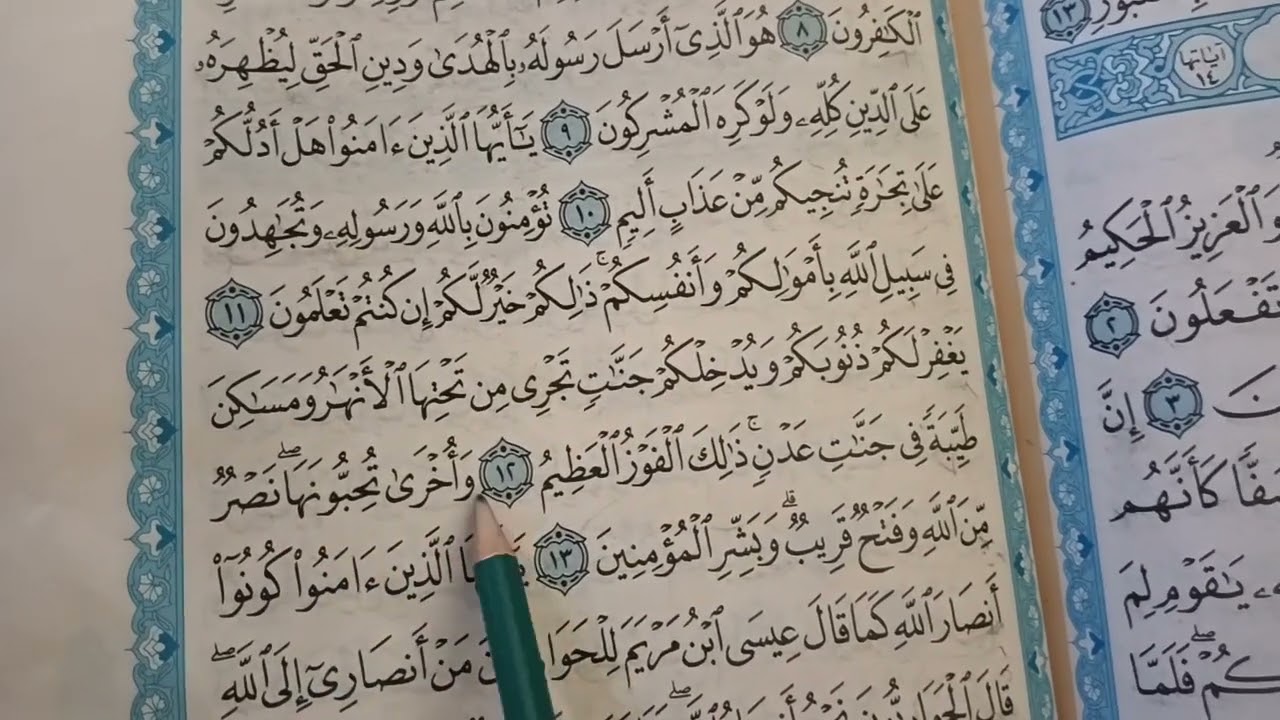 ٱلْكَٰفِرُونَ ٨ هُوَ ٱلَّذِىٓ أَرْسَلَ رَسُولَهُۥ بِٱلْهُدَىٰ وَدِينِ ٱلْحَقِّ لِيُظْهِرَهُۥ
عَلَى ٱلدِّينِ كُلِّهِۦ وَلَوْ كَرِهَ ٱلْمُشْرِكُونَ ٩ يَٰٓأَيُّهَا ٱلَّذِينَ ءَامَنُوا۟ هَلْ أَدُلُّكُمْ
عَلَىٰ تِجَٰرَةٍ تُنجِيكُم مِّنْ عَذَابٍ أَلِيمٍ ١٠ تُؤْمِنُونَ بِٱللَّهِ وَرَسُولِهِۦ وَتُجَٰهِدُونَ
فِى سَبِيلِ ٱللَّهِ بِأَمْوَٰلِكُمْ وَأَنفُسِكُمْ ۚ ذَٰلِكُمْ خَيْرٌ لَّكُمْ إِن كُنتُمْ تَعْلَمُونَ ١١
يَغْفِرْ لَكُمْ ذُنُوبَكُمْ وَيُدْخِلْكُمْ جَنَّٰتٍ تَجْرِى مِن تَحْتِهَا ٱلْأَنْهَٰرُ وَمَسَٰكِنَ
طَيِّبَةً فِى جَنَّٰتِ عَدْنٍ ۚ ذَٰلِكَ ٱلْفَوْزُ ٱلْعَظِيمُ ١٢ وَأُخْرَىٰ تُحِبُّونَهَا ۖ نَصْرٌ
مِّنَ ٱللَّهِ وَفَتْحٌ قَرِيبٌ ۗ وَبَشِّرِ ٱلْمُؤْمِنِينَ ١٣ ٱلَّذِينَ ءَامَنُوا۟ كُونُوٓا۟
أَنصَارَ ٱللَّهِ كَمَا قَالَ عِيسَى ٱبْنُ مَرْيَمَ مَنْ أَنصَارِىٓ إِلَى ٱللَّهِ ۖ
قَالَ ٱلْحَوَارِيُّونَ
١٣
ءَايَاتُهَا
١٤
ٱلْعَزِيزُ ٱلْحَكِيمُ
تَفْعَلُونَ ٢
٣ إِنَّ
كَأَنَّهُم
يَٰقَوْمِ لِمَ
فَلَمَّا